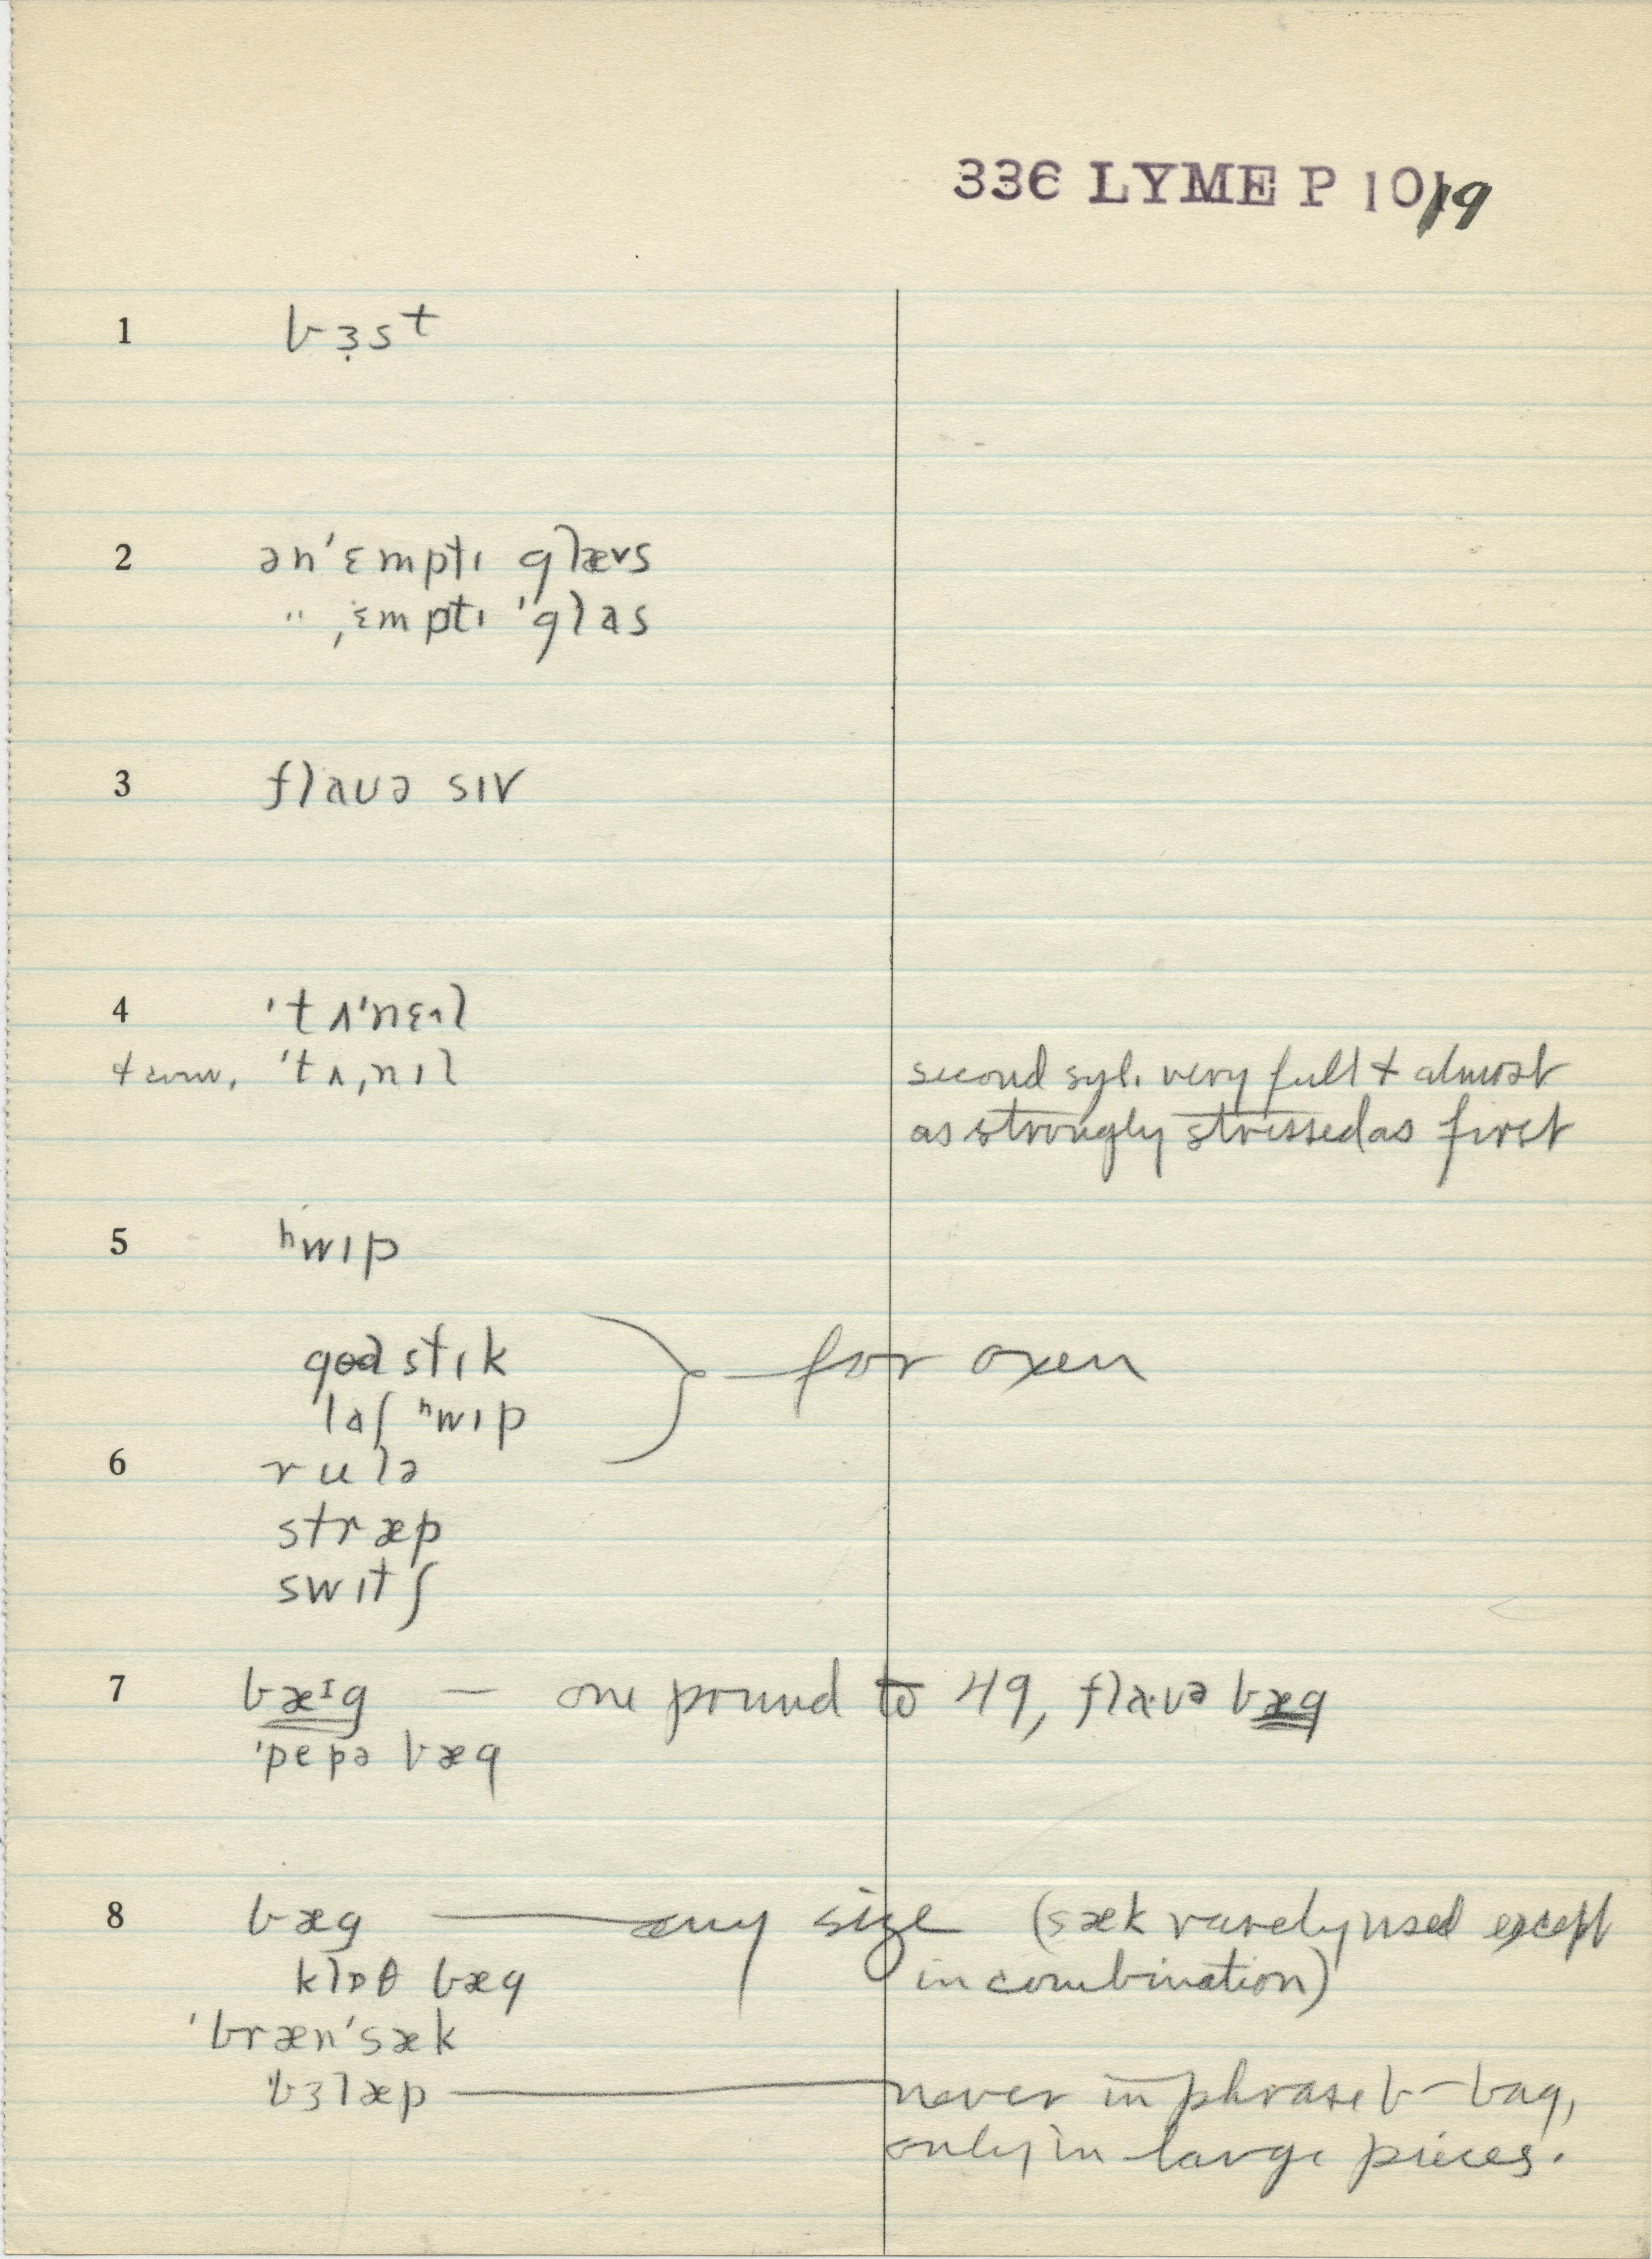 336 LYME P 10/19
1 bɜ̣st
2 ən'ɛmptɪ glævs
" ˌɛmptɪ 'glas
3 flauə sɪv
4 'tʌ'nɛɪl
'tʌˌnɪl
second syl. very full + almost
as strongly stressed as first
5 ʰwɪp
stɪk — for oxen
'laʃ ʰwɪp
6 rulə
stræp
swɪtʃ
7 bæᴵg — one pound to 49, fla·uə bæg
'pepə bæg
8 bæg — any size (sæk rarely used except
klɒθ bæg in combination)
'bræn'sæk
'bɜlæp — never in phrase b– bag,
only in large pieces.